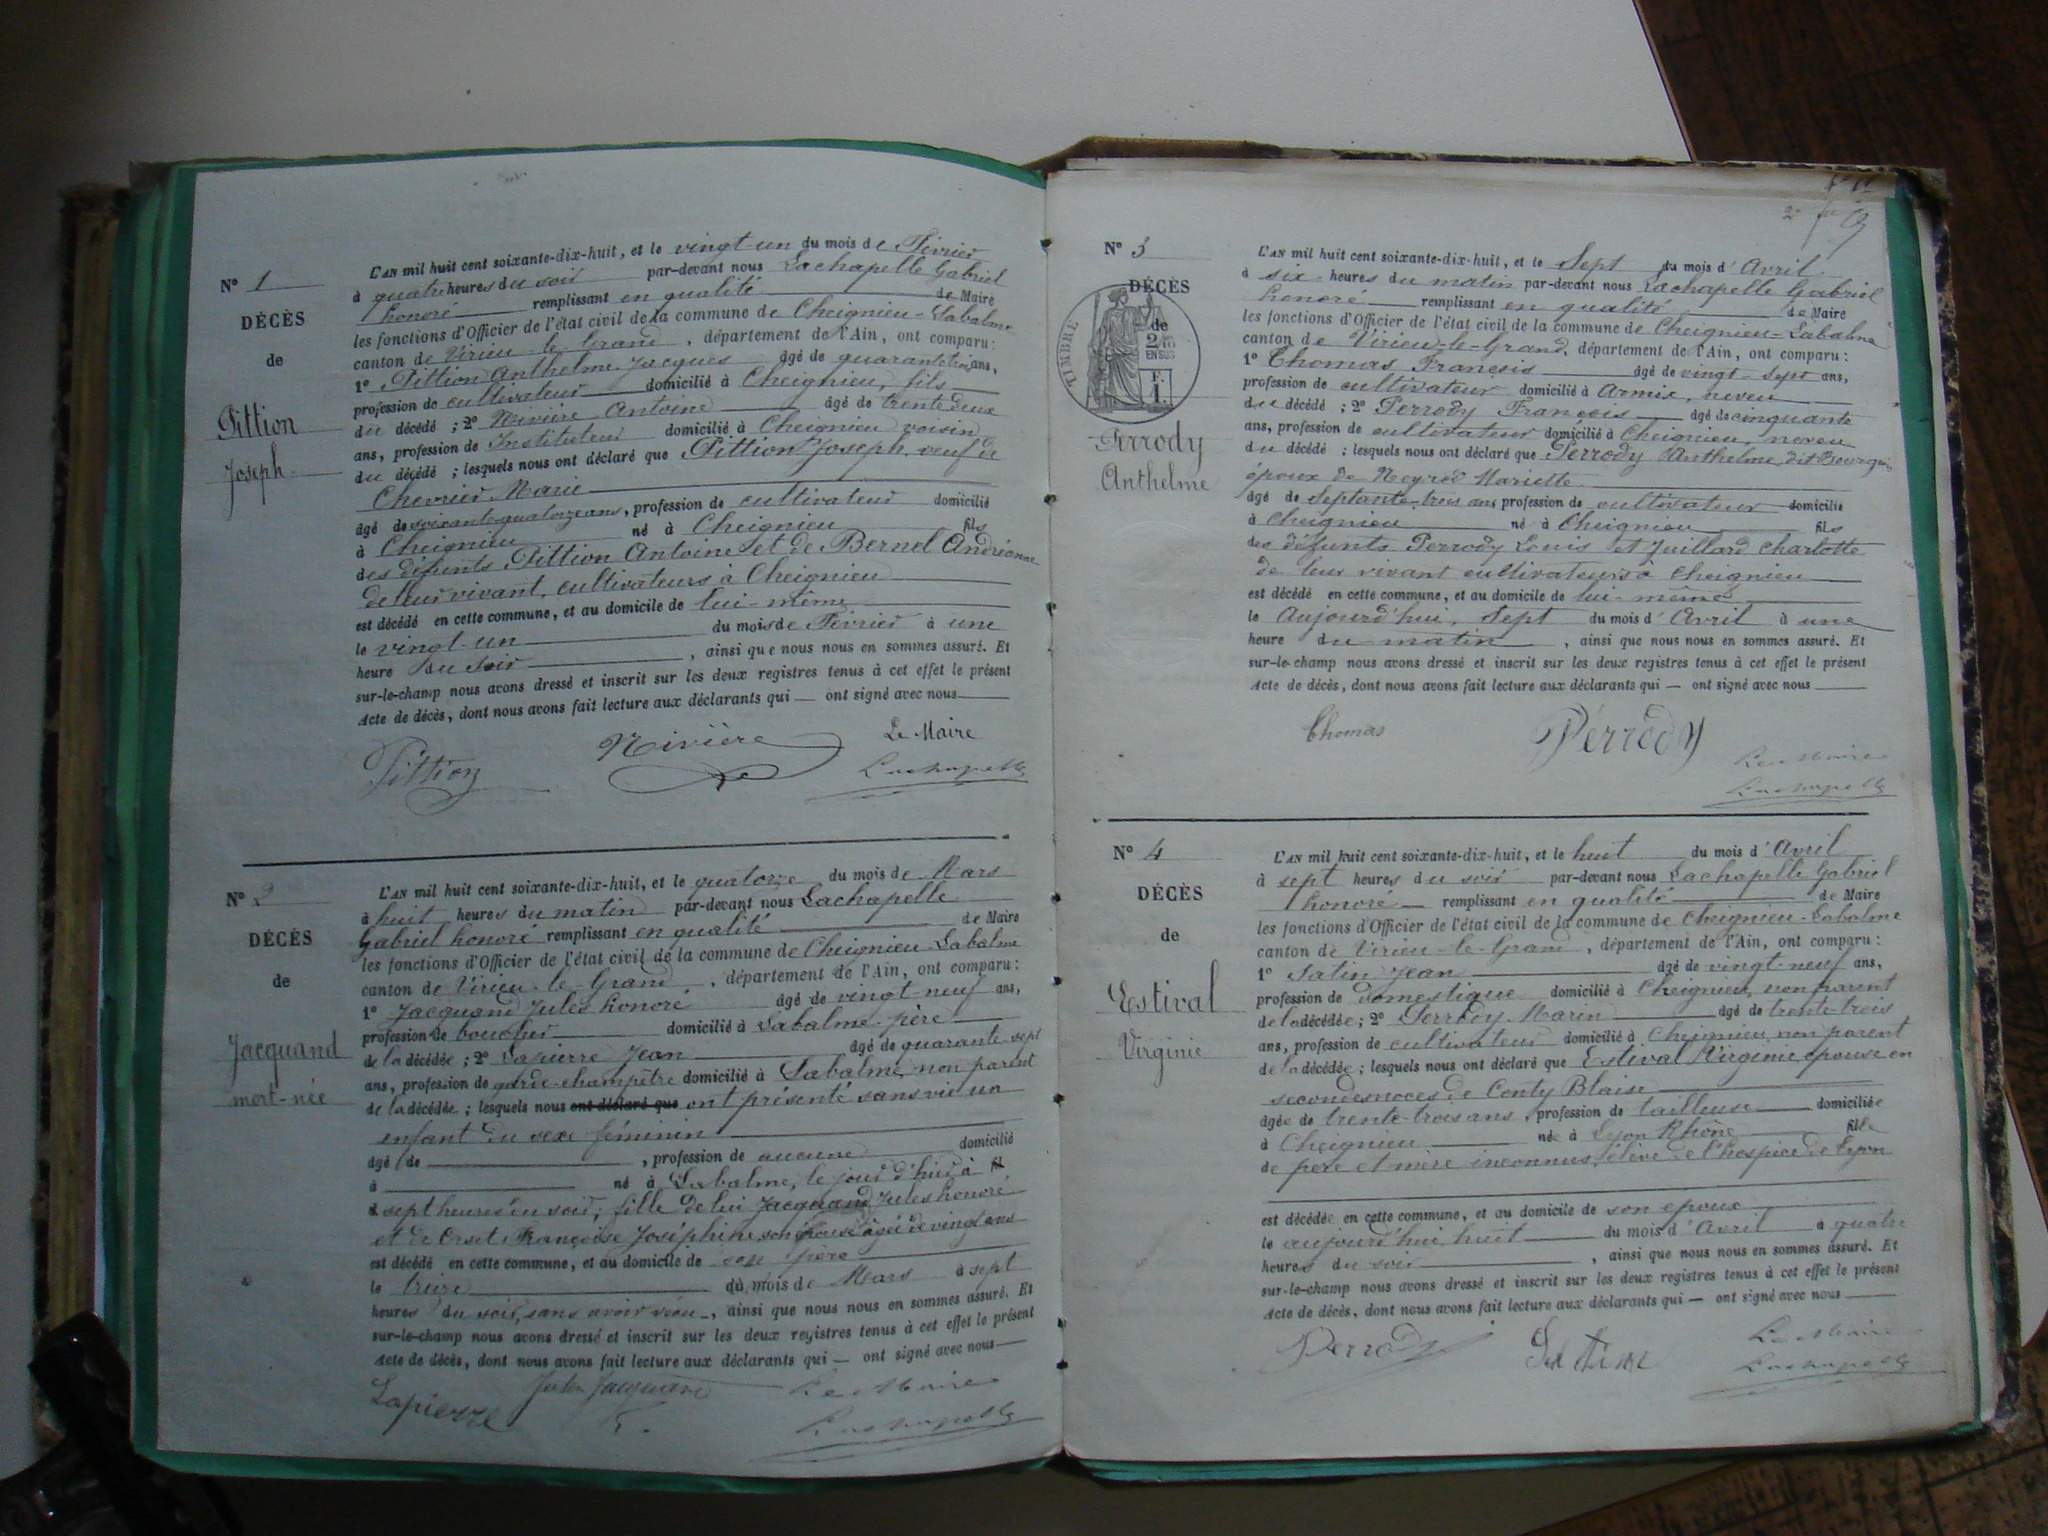 N° 1
DÉCÈS
de
Pittion
Joseph
L'AN mil huit cent soixante-dix-huit, et le vingt-un du mois de Février
à quatre heures du soir par-devant nous Lachapelle Gabriel
honoré remplissant en qualité de Maire
les fonctions d'Officier de l'état civil de la commune de Cheignieu-Labalme
canton de Virieu-le-Grand, département de l'Ain, ont comparu :
1° Pittion Anthelme Jacques âgé de quarante trois ans,
profession de cultivateur domicilié à Cheignieu, fils
du décédé ; 2° Rivière Antoine âgé de trente deux
ans, profession de Instituteur domicilié à Cheignieu voisin
du décédé ; lesquels nous ont déclaré que Pittion Joseph, veuf de
Chevrier Marie
âgé de soixante quatorze ans, profession de cultivateur domicilié
à Cheignieu né à Cheignieu fils
des défunts Pittion Antoine et de Bernel Andréanne
de leur vivant, cultivateurs à Cheignieu
est décédé en cette commune, et au domicile de lui-même
le vingt-un du mois de Février à une
heure du soir, ainsi que nous nous en sommes assuré. Et
sur-le-champ nous avons dressé et inscrit sur les deux registres tenus à cet effet le présent
Acte de décès, dont nous avons fait lecture aux déclarants qui — ont signé avec nous
Pittion Rivière Le Maire
Lachapelle
N° 2
DÉCÈS
de
Jacquand
mort-née
L'AN mil huit cent soixante-dix-huit, et le quatorze du mois de Mars
à huit heures du matin par-devant nous Lachapelle
Gabriel honoré remplissant en qualité de Maire
les fonctions d'Officier de l'état civil de la commune de Cheignieu-Labalme
canton de Virieu-le-Grand, département de l'Ain, ont comparu :
1° Jacquand Jules honoré âgé de vingt-neuf ans,
profession de boucher domicilié à Labalme père
de la décédée ; 2° Lapierre Jean âgé de quarante-sept
ans, profession de garde-champêtre domicilié à Labalme, non parent
de la décédée ; lesquels nous ont déclaré que ont présenté sans vie un
enfant du sexe féminin
âgé de , profession de aucune domicilié
à né à Labalme, le jour d'hier à fil
à sept heures du soir, fille de lui Jacquand Jules honoré
et de Françoise Joséphine, son épouse âgée de vingt ans
est décédé en cette commune, et au domicile de son père
le treize du mois de Mars à sept
heures du soir, sans avoir vécu, ainsi que nous nous en sommes assuré. Et
sur-le-champ nous avons dressé et inscrit sur les deux registres tenus à cet effet le présent
Acte de décès, dont nous avons fait lecture aux déclarants qui — ont signé avec nous
Lapierre Jules Jacquand Le Maire
Lachapelle
N° 3
DÉCÈS
de
TIMBRE
2/10
EN SUS
Perrody
Anthelme
L'AN mil huit cent soixante-dix-huit, et le Sept du mois d'Avril
à six heures du matin par-devant nous Lachapelle Gabriel
honoré remplissant en qualité de Maire
les fonctions d'Officier de l'état civil de la commune de Cheignieu-Labalme
canton de Virieu-le-Grand, département de l'Ain, ont comparu :
1° Thomas François âgé de vingt-sept ans,
profession de cultivateur domicilié à Armix, neveu
du décédé ; 2° Perrody François âgé de cinquante
ans, profession de cultivateur domicilié à Cheignieu, neveu
du décédé ; lesquels nous ont déclaré que Perrody Anthelme, dit
époux de Neyret Mariette
âgé de septante-trois ans profession de cultivateur domicilié
à Cheignieu né à Cheignieu fils
des défunts Perrody Louis et Juillard Charlotte
de leur vivant cultivateurs à Cheignieu
est décédé en cette commune, et au domicile de lui-même
le Aujourd'hui, Sept du mois d'Avril à une
heure du matin, ainsi que nous nous en sommes assuré. Et
sur-le-champ nous avons dressé et inscrit sur les deux registres tenus à cet effet le présent
Acte de décès, dont nous avons fait lecture aux déclarants qui — ont signé avec nous
Thomas Pérrody
Le Maire
Lachapelle
N° 4
DÉCÈS
de
Estival
Virginie
L'AN mil huit cent soixante-dix-huit, et le huit du mois d'Avril
à sept heures du soir par-devant nous Lachapelle Gabriel
honoré remplissant en qualité de Maire
les fonctions d'Officier de l'état civil de la commune de Cheignieu-Labalme
canton de Virieu-le-Grand, département de l'Ain, ont comparu :
1° Satin Jean âgé de vingt-neuf ans,
profession de domestique domicilié à Cheignieu, non parent
de la décédée ; 2° Perrody Marin âgé de trente trois
ans, profession de cultivateur domicilié à Cheignieu, non parent
de la décédée ; lesquels nous ont déclaré que Estival Virginie épouse en
secondes noces de Conty Blaise
âgée de trente-trois ans, profession de tailleuse domiciliée
à Cheignieu née à Lyon Rhône fille
de père et mère inconnus, élève de l'hospice de Lyon
est décédée en cette commune, et au domicile de son époux
le aujourd'hui huit du mois d'Avril à quatre
heures du soir, ainsi que nous nous en sommes assuré. Et
sur-le-champ nous avons dressé et inscrit sur les deux registres tenus à cet effet le présent
Acte de décès, dont nous avons fait lecture aux déclarants qui — ont signé avec nous
Perrody Satin Le Maire
Lachapelle